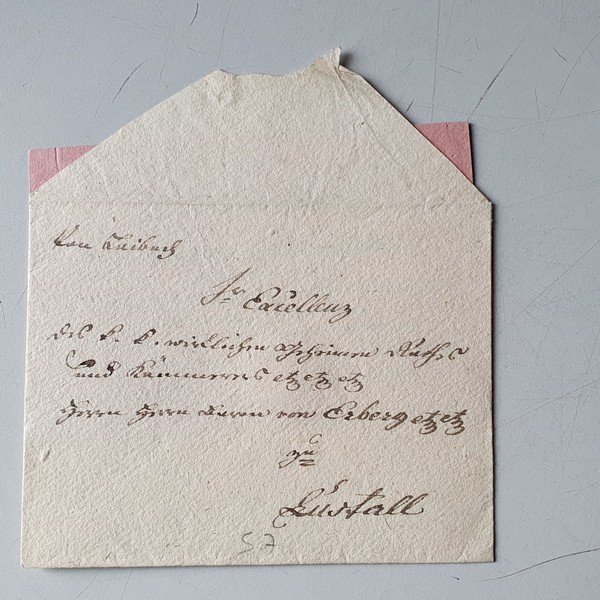 Von Laibach
Sr Excellenz
des k. k. wirklichen geheimen Rathes
und Kämmerers etz etz etz
Herrn Herrn Baron von Erberg etz etz
zu
Lustall
57